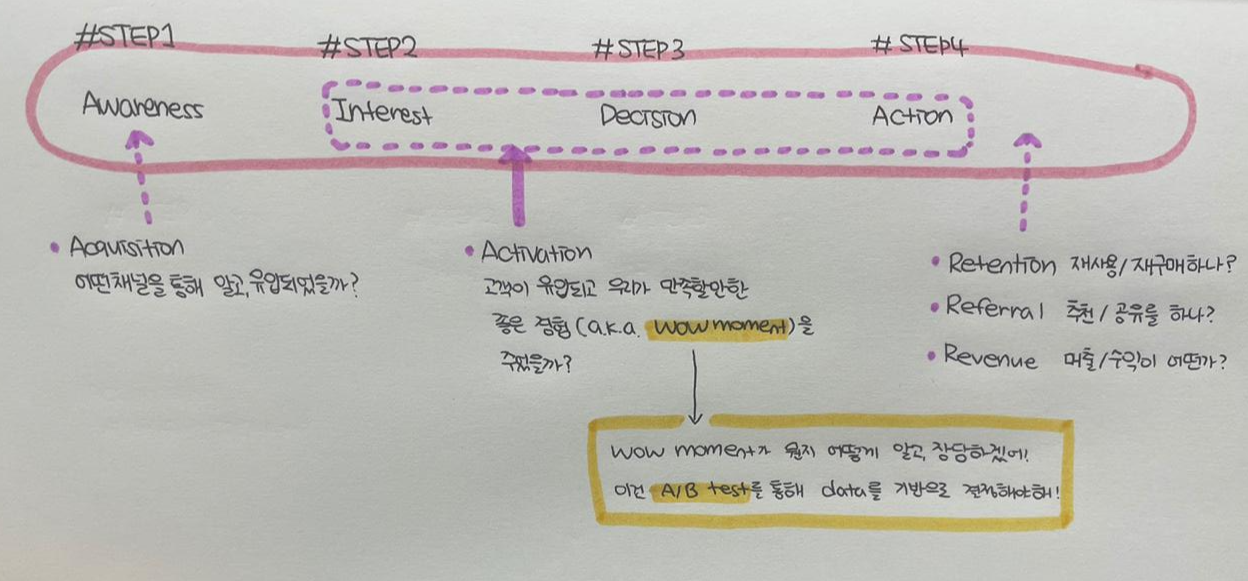 #STEP1
#STEP2
#STEP3
#STEP4
Awareness
Interest
Decision
Action
• Acquisition
어떤채널을 통해 알고, 유입되었을까?
• Activation
고객이 유입되고 우리가 만족할만한
좋은 경험(a.k.a. wow moment)을
주었을까?
• Retention 재사용/재구매하나?
• Referral 추천/공유를 하나?
• Revenue 매출/수익이 어떤가?
wow moment가 뭔지 어떻게 알고, 장담하겠어!
이건 A/B test를 통해 data를 기반으로 결정해야해!